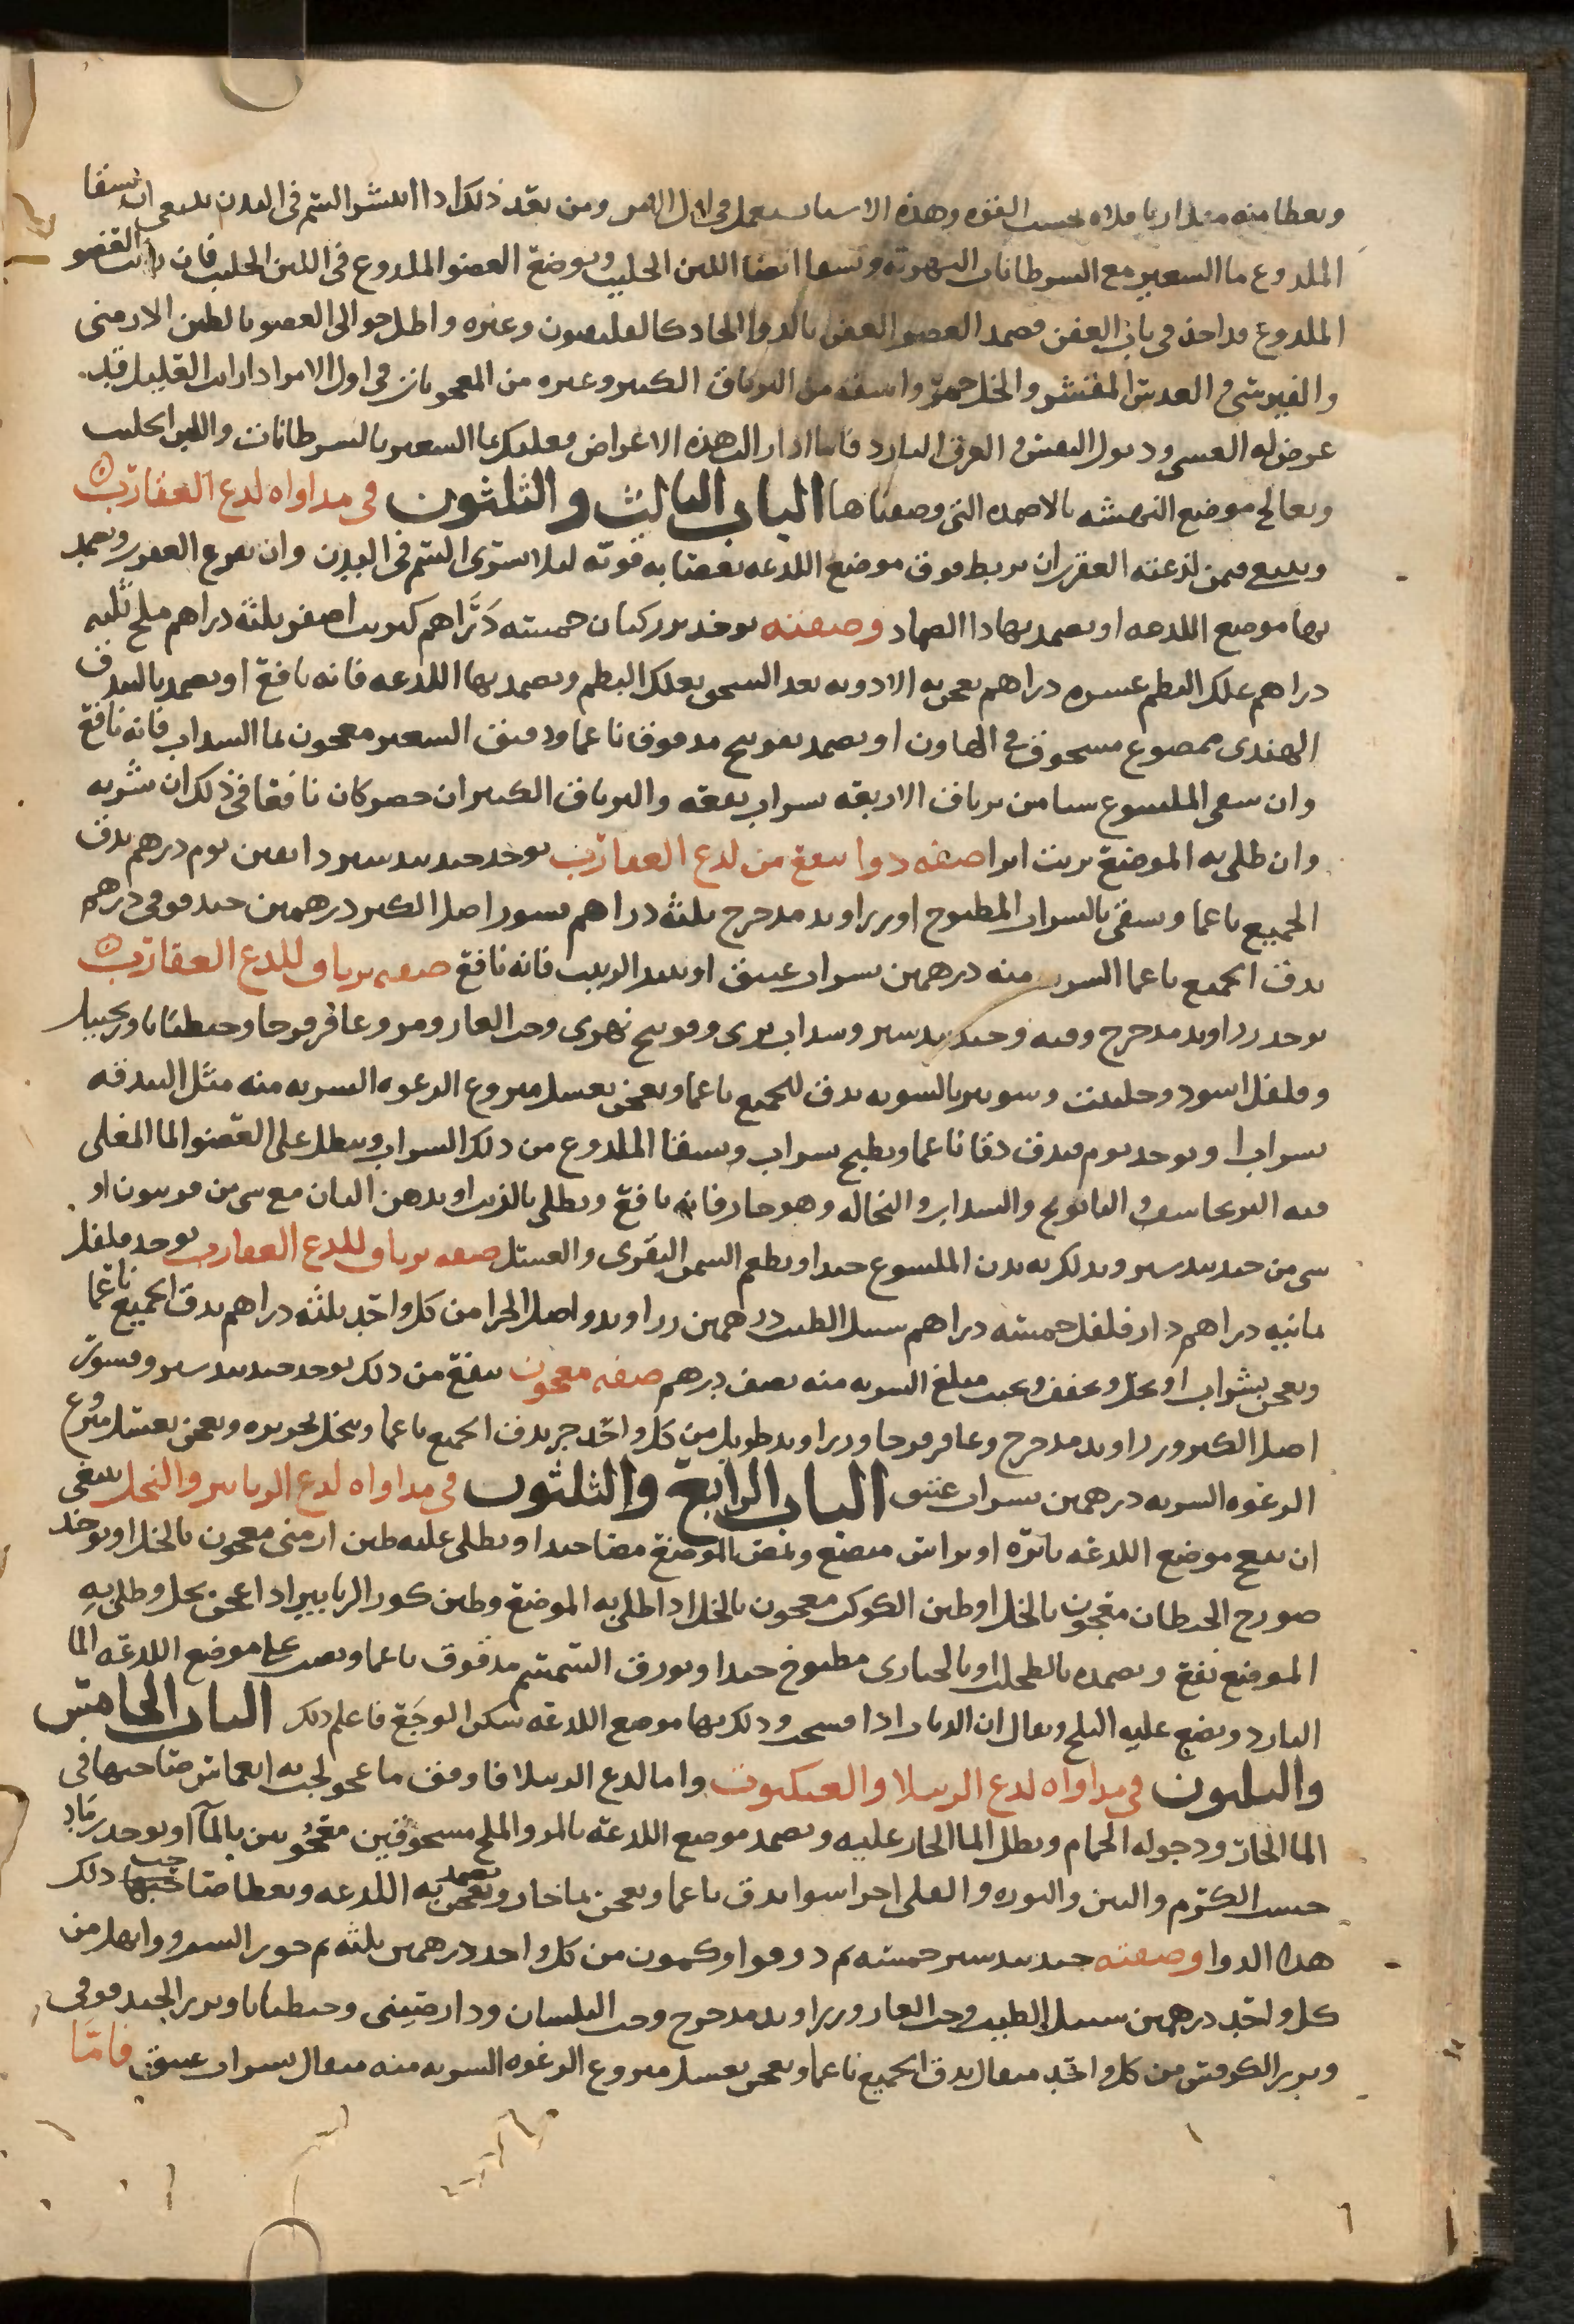 ويعطا منه مقدار باقلاه بحسب القوه وهذه الاشيا تستعمل في اول الامر ومن بعد ذلك اذا انتشر السم في البدن ينبغي ان يسقا
الملدوغ ما الشعير مع السرطانات النهرية ويسقا ايضا اللبن الحليب ويوضع العضو الملدوغ في اللبن الحليب فان كان العضو
الملدوغ قد اخذ في باب العفن فضمد العضو العفن بالدوا الحاد كالقلدفيون وغيره واطل حوالى العضو بالطين الارمنى
والقبرسى والعدس المقشر والخل خمر واسقه من الترياق الكبير وغيره من المعجونات في اول الامر اذا رايت العليل قد
عرض له الغشى وذبول النفس والعرق البارد فاما اذا زالت هذه الاعراض فعليك بما الشعير بالسرطانات واللبن الحليب
ويعالج موضع النهشه بالاضمده التى وصفناها الباب الثالث والثلثون في مداواه لدغ العقارب
وينبغي فيمن لدغته العقرب ان يربط فوق موضع اللدغه بعصابه قويه ليلا يسرى السم في البدن وان تفرع العقرب ويضمد
بها موضع اللدغه او يضمد بهاذا الضماد وصفته يوخذ بزر كتان خمسه دراهم كبريت اصفر ثلثه دراهم ملح ثلثه
دراهم علك البطم عشره دراهم يعجن به الادويه بعد السحق بعلك البطم ويضمد بها اللدغه فانه نافع او يضمد بالبندق
الهندى ممضوغ مسحوق في الهاون او يضمد بفوتنج مدقوق ناعما ودقيق الشعير معجون بما السداب فانه نافع
وان سقى الملسوع شيا من ترياق الاربعه بشراب نفعه والترياق الكبير ان حضر كان نافعا في ذلك ان شربه
وان طلى به الموضع بريت ابرا صفه دوا ينفع من لدغ العقارب يوخذ جندبيدستر دانقين ثوم درهم يدق
الجميع ناعما ويسقى بالشراب المطبوخ او زراوند مدحرج ثلثه دراهم قشور اصل الكبر درهمين حندقوقى درهم
يدق الجميع ناعما الشربه منه درهمين بشراب عتيق او نبيذ الزبيب فانه نافع صفه ترياق للدغ العقارب
يوخذ زراوند مدحرج وقنه وجندبيدستر وسداب برى وفوتنج نهرى وحب الغار ومر وعاقرقرحا وجنطيانا وزنجبيل
وفلفل اسود وحلتيت وشونيز بالسويه يدق الجميع ناعما ويعجن بعسل منزوع الرغوه الشربه منه مثل البندقه
بشراب او يوخذ ثوم فيدق دقا ناعما ويطبخ بشراب ويسقا الملدوغ من ذلك الشراب وينطل على العضو الما المغلى
فيه البرنجاسف والبابونج والسداب والنخاله وهو حار فانه نافع ويطلى بالزيت او بدهن البان مع شى من فربيون او
شى من جندبيدستر ويدلك به بدن الملسوع جيدا ويطعم السمن البقرى والعسل صفه ترياق للدغ العقارب يوخذ فلفل
ثمانيه دراهم دارفلفل خمسه دراهم سنبل الطيب درهمين زراوند واصل الحزا من كل واحد ثلثه دراهم يدق الجميع ناعما
ويعجن بشراب او بخل ويجفف ويحبب مبلغ الشربه منه نصف درهم صفه معجون ينفع من ذلك يوخذ جندبيدستر وقشور
اصل الكبر وزراوند مدحرج وعاقرقرحا وزراوند طويل من كل واحد جز يدق الجميع ناعما وينخل بحريره ويعجن بعسل منزوع
الرغوه الشربه درهمين بشراب عتيق الباب الرابع والثلثون في مداواه لدغ الزنابير والنحل ينبغى
ان يفتح موضع اللدغه بابره او براس مبضع ويمص الموضع مصا جيدا ويطلى عليه طين ارمنى معجون بالخل او يوخذ
صورج الحيطان معجون بالخل او طين الكوكب معجون بالخل اذا طلى به الموضع وطين كور الزنابير اذا عجن بخل وطلى به
الموضع نفع ويضمده بالطحلب او بالخبازى مطبوخ جيدا او بورق السمسم مدقوق ناعما ويصب على موضع اللدغه الما
البارد ويضع عليه الثلج ويقال ان الذباب اذا مسحت ودلك بها موضع اللدغه سكن الوجع فاعلم ذلك الباب الخامس
والثلثون في مداواه لدغ الرتيلا والعنكبوت واما لدغ الرتيلا فاوفق ما عولجت به انغماس صاحبها في
الما الحار ودخوله الحمام وينطل الما الحار عليه ويضمد موضع اللدغه بالمر والملح مسحوقين معجونين بالما او يوخذ رماد
خشب الكرم والتين والنوره والقلى اجزا سوا يدق ناعما ويعجن بما حار ويضمد به اللدغه ويعطا صاحب ذلك
هذا الدوا وصفته جندبيدستر خمسه م دوقوا وكمون من كل واحد درهمين ثلثه م جوز السرو وابهل من
كل واحد درهمين سنبل الطيب وحب الغار وزراوند مدحرج وحب البلسان ودار صينى وجنطيانا وبزر الحندقوقى
وبزر الكرفس من كل واحد مثقال يدق الجميع ناعما ويعجن بعسل منزوع الرغوه الشربه منه مثقال بشراب عتيق فاما